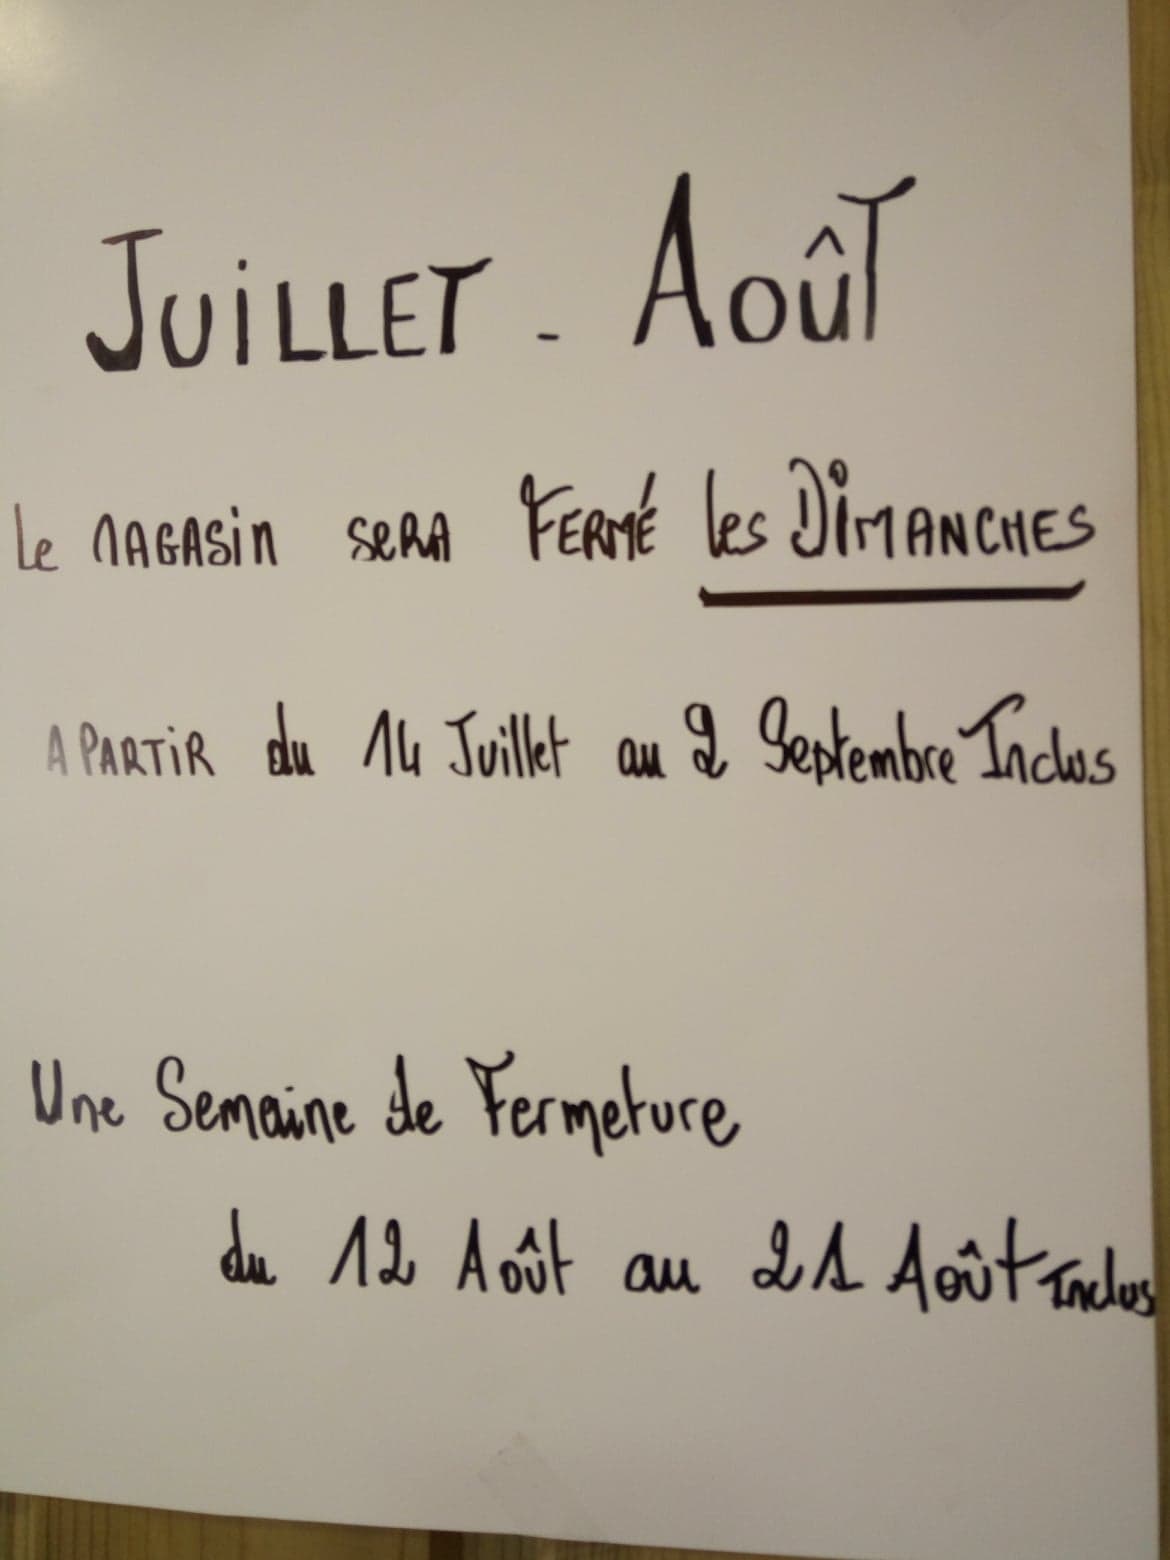 JUiLLET - AoûT
Le MAGASiN SeRA FERMÉ les DiMANCHES
A PARTiR du 14 Juillet au 2 Septembre Inclus
Une Semaine de Fermeture
du 12 Août au 21 Août Inclus